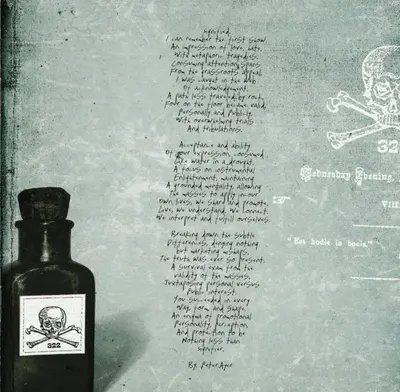 Ignified.
I can remember the first show.
An impression of love, hate,
With metaphoric tragedies.
Consuming attention spans
From the grassroots appeal
I was caught in the web
Of acknowledgement.
A path less traveled by routh,
Four on the floor became valid.
Personally and Publicly,
With overwhelming trials
And tribulations.
Acceptance and ability
Of your expression, consumed
Like water in a drought.
A focus on instrumental
Enlightenment, maintaining
A grounded mentality, allowing
The masses to apply in our
Own lives, we share and promote,
Live, we understand. We connect,
We interpret and fulfill ourselves.
Breaking down the subtle
Differences, denying nothing
but marketing mishaps.
The truth was ever so present.
A survival exam from the
validity of the masses.
Juxtaposing personal versus
Public interest.
You succeeded in every
Way, form and shape.
An enigma of promotional
Personality, perception,
And protection to be
Nothing less than
Ignifier.
By: Peter Ayer
322
322
VIII
"Em bodie is hooie."